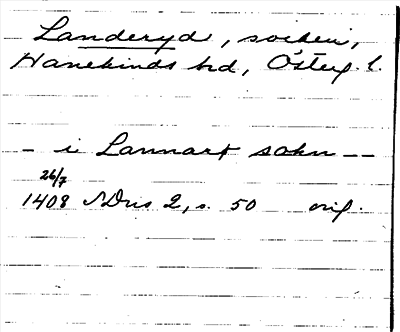 Landeryd, socken,
Hanekinds hd, Österg. l.
- i Lannart sokn --
26/7
1408 SDns 2, s. 50 orig.